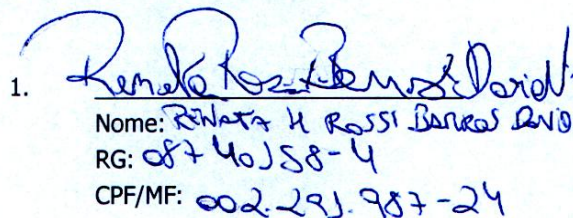 1. Renata Rossi Barros David
Nome: RENATA H ROSSI BARROS DAVID
RG: 08740158-4
CPF/MF: 002.291.987-24